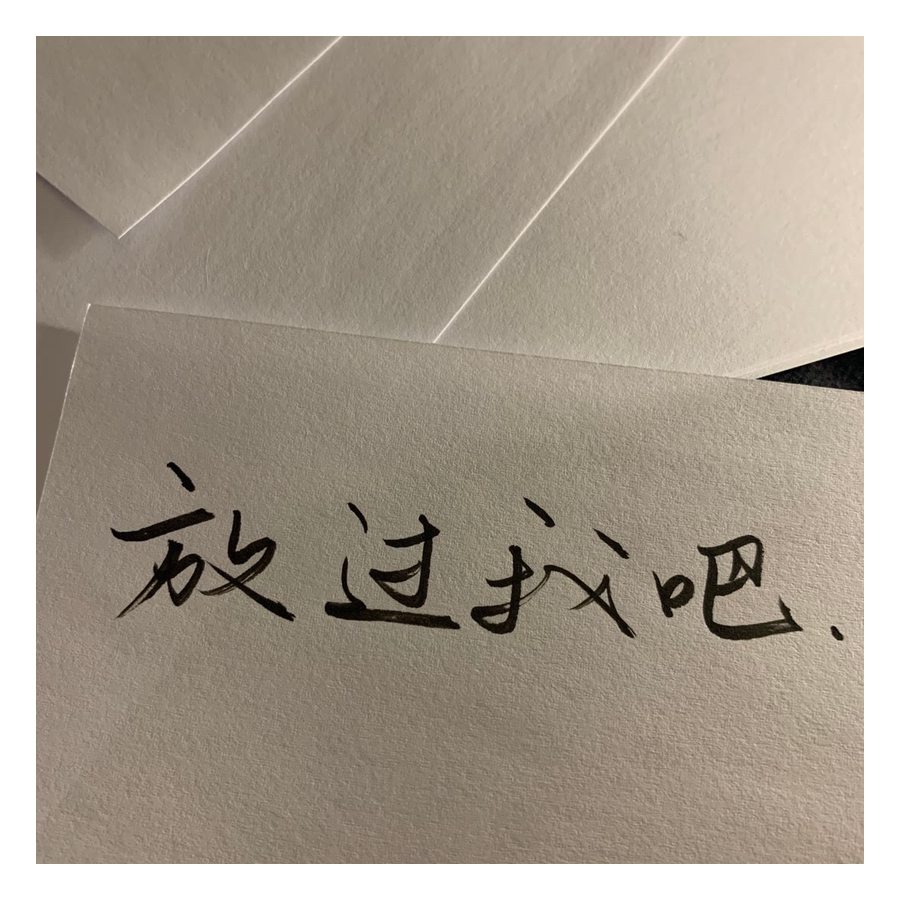 放过我吧.